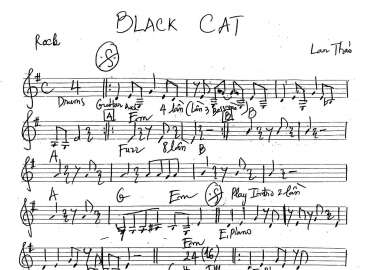 BLACK CAT
Rock
Lan Thảo
4
Drums Guitar 4 lần (Lần 3 B
A Em B
Fuzz 8 lần B
A
A G Em Play Intro 2 lần
E.piano
Em
24 (16)